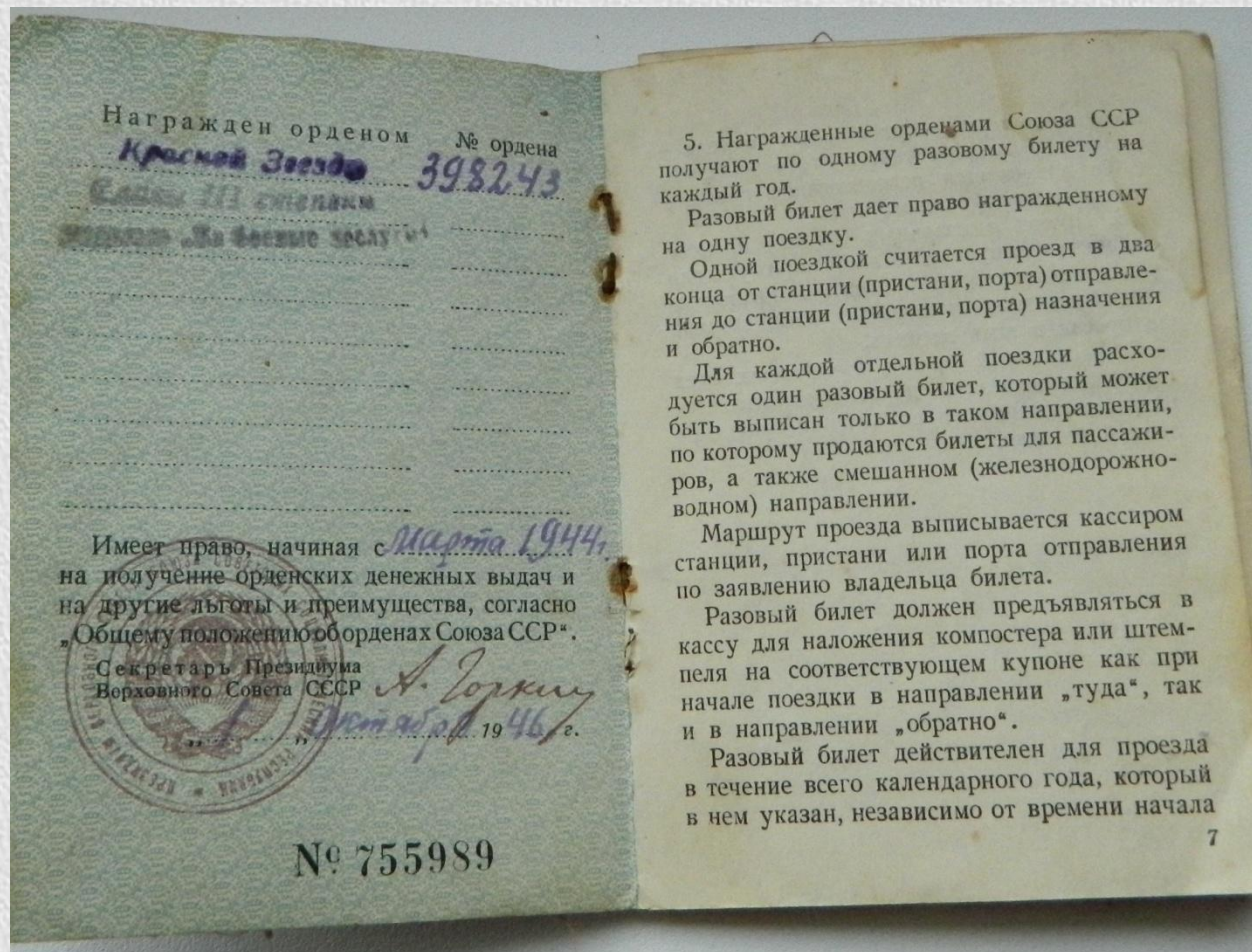 Награжден орденом № ордена
Красной Звезды 398243
Славы III степени
медалью „За боевые заслуги“
Имеет право, начиная с марта 1944 г.
на получение орденских денежных выдач и
на другие льготы и преимущества, согласно
„Общему положению об орденах Союза ССР“.
Секретарь Президиума
Верховного Совета СССР А. Горкин
„1„ октября 1946 г.
№ 755989
5. Награжденные орденами Союза ССР
получают по одному разовому билету на
каждый год.
Разовый билет дает право награжденному
на одну поездку.
Одной поездкой считается проезд в два
конца от станции (пристани, порта) отправле-
ния до станции (пристани, порта) назначения
и обратно.
Для каждой отдельной поездки расхо-
дуется один разовый билет, который может
быть выписан только в таком направлении,
по которому продаются билеты для пассажи-
ров, а также смешанном (железнодорожно-
водном) направлении.
Маршрут проезда выписывается кассиром
станции, пристани или порта отправления
по заявлению владельца билета.
Разовый билет должен предъявляться в
кассу для наложения компостера или штем-
пеля на соответствующем купоне как при
начале поездки в направлении „туда“, так
и в направлении „обратно“.
Разовый билет действителен для проезда
в течение всего календарного года, который
в нем указан, независимо от времени начала
7